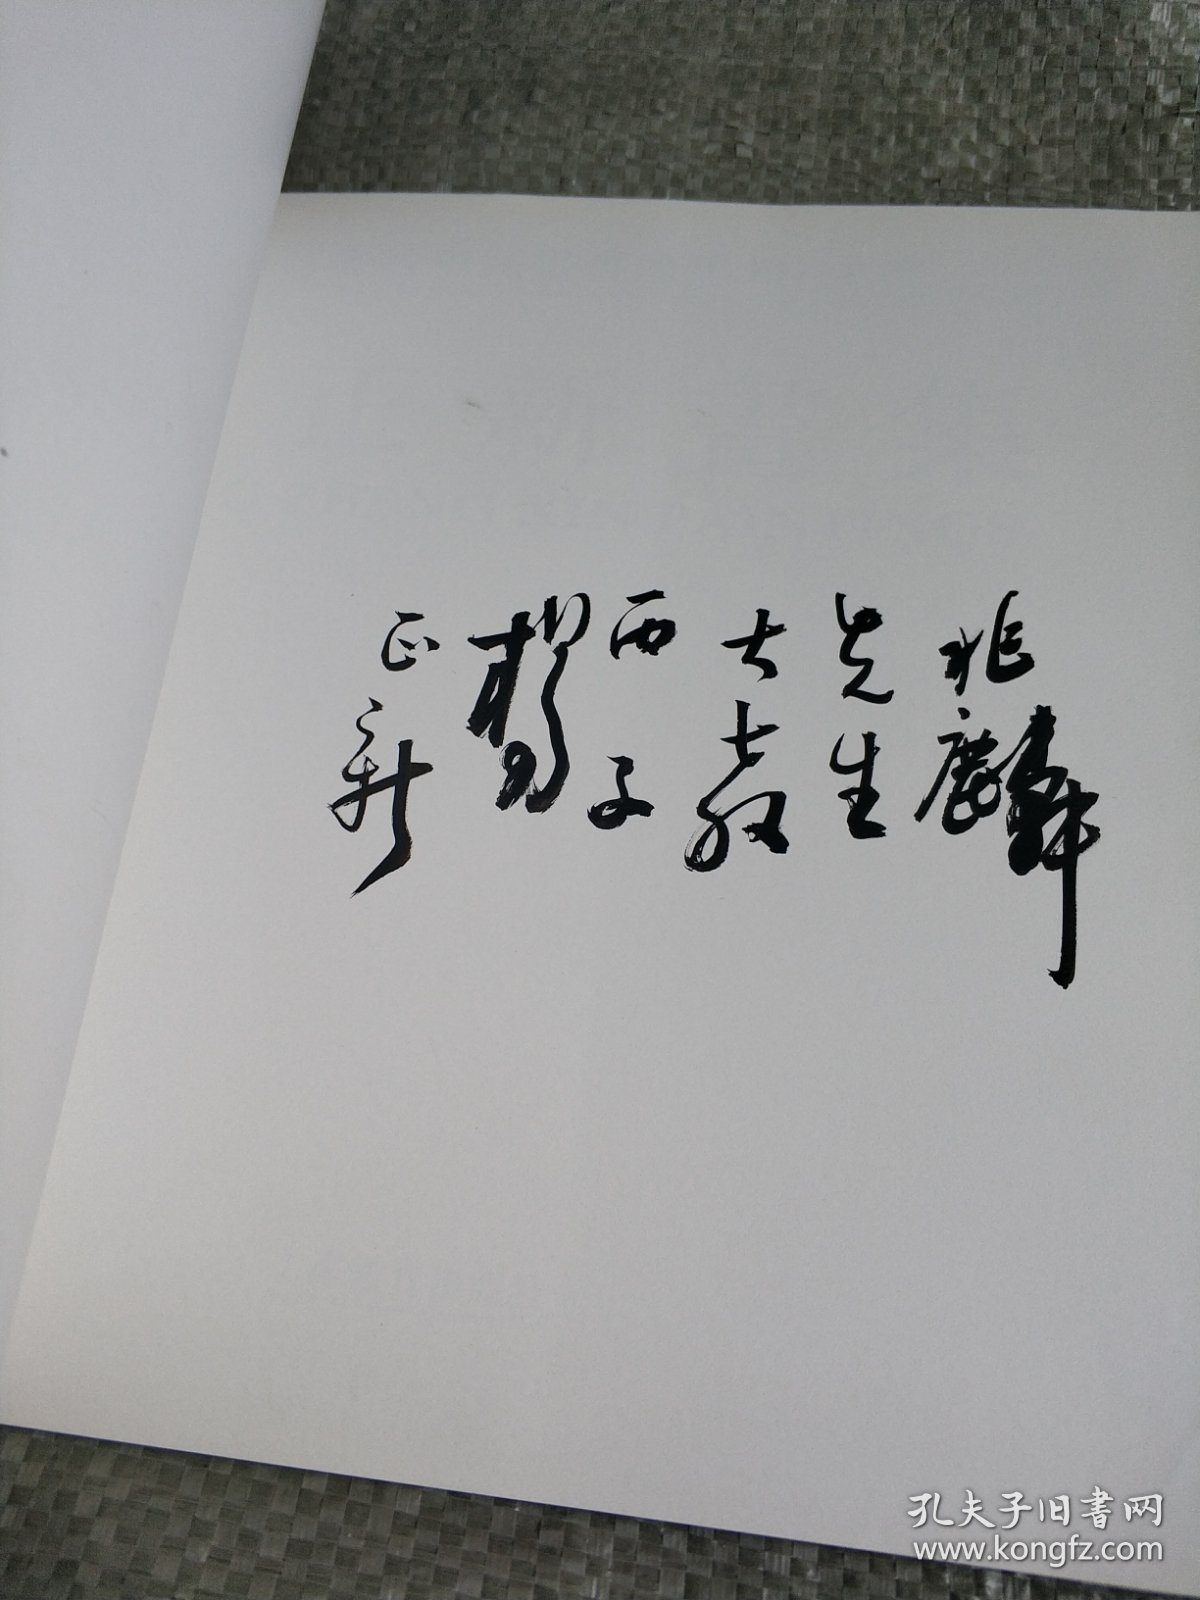 兆麟
先生
大教
西子
楊
正新
孔夫子旧书网
www.kongfz.com